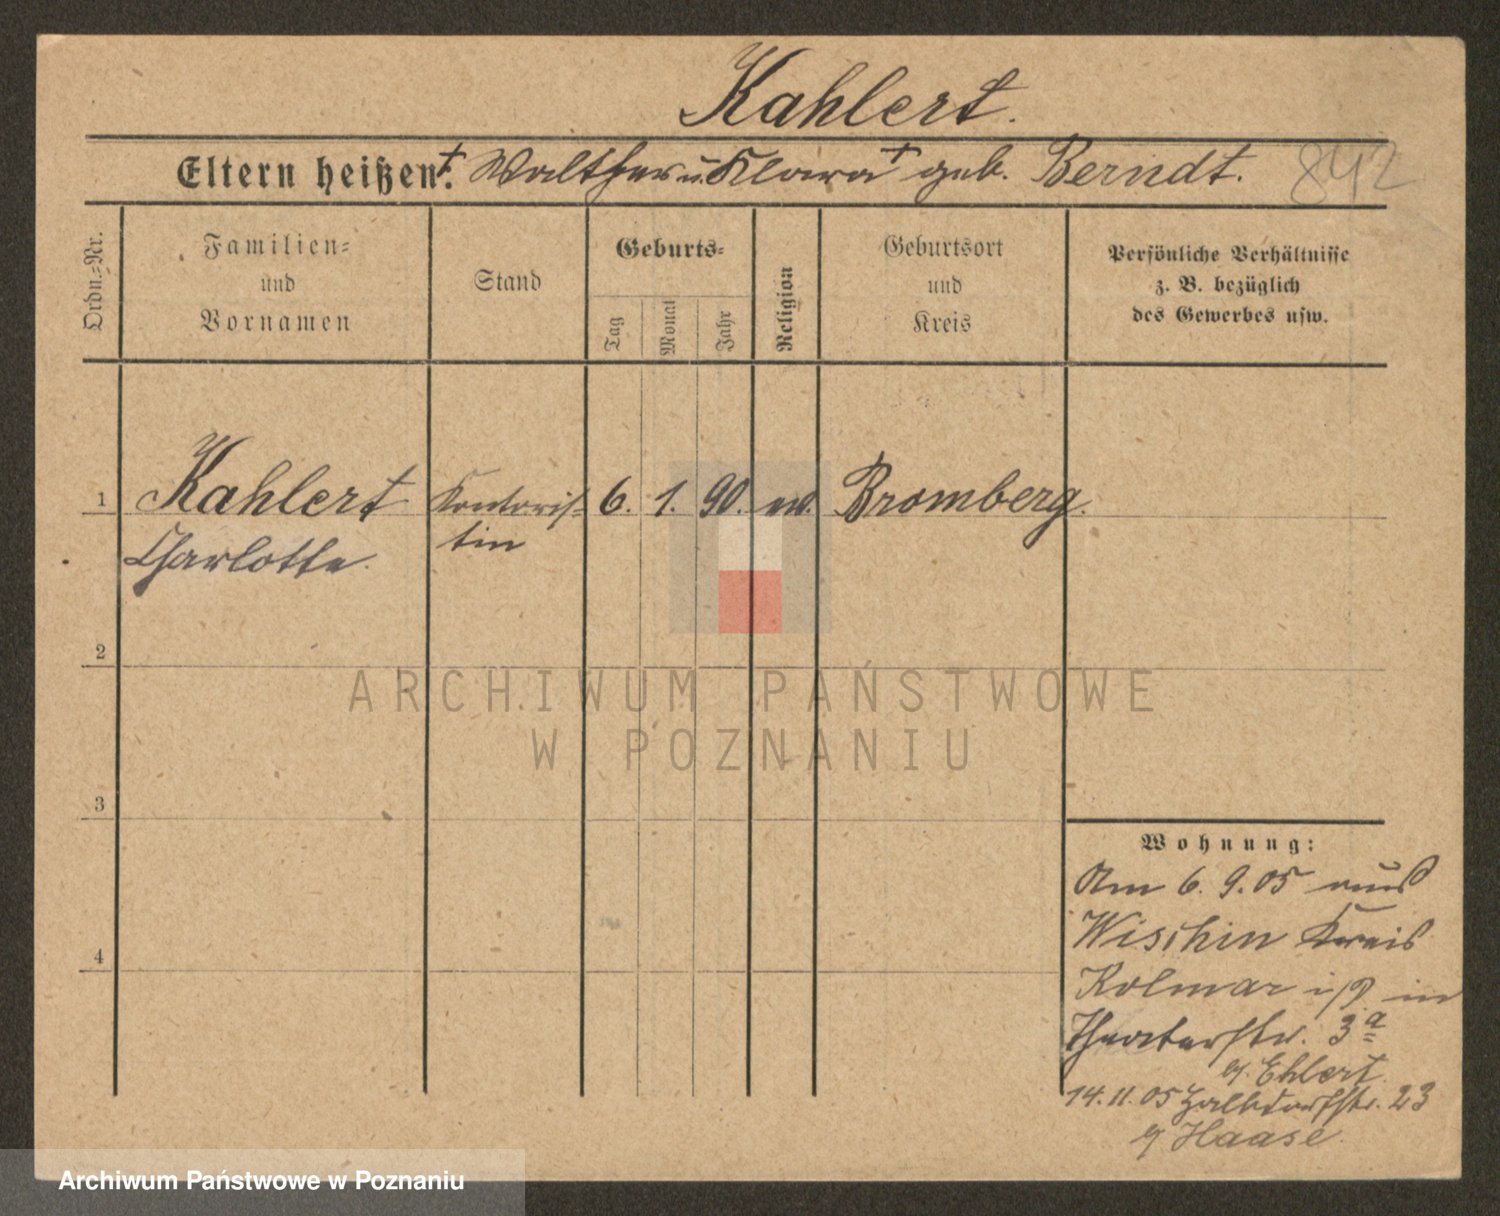 Kahlert.
Eltern heißen: † Walther u. Klara † geb. Berndt.
842
Ordn.-Nr.
Familien-
und
Vornamen
Stand
Geburts-
Tag
Monat
Jahr
Religion
Geburtsort
und
Kreis
Persönliche Verhältnisse
z. B. bezüglich
des Gewerbes usw.
1 Kahlert Kontoris- 6. 1. 90. ev. Bromberg.
Charlotte. tin
2
ARCHIWUM PAŃSTWOWE
W POZNANIU
3
Wohnung:
Am 6. 9. 05 aus
Wischin Kreis
4
Kolmar in
Theaterstr. 3a
Ehlert
14. 11. 05 23
Haase
Archiwum Państwowe w Poznaniu